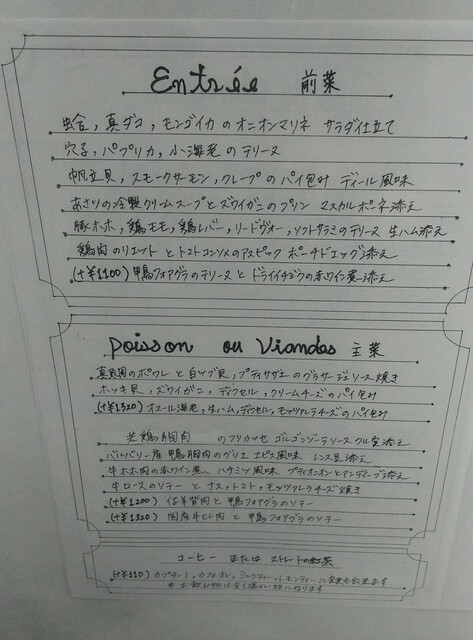 Entrée 前菜
蛤, 真ダコ, モンゴイカ の オニオンマリネ サラダ仕立て
穴子, パプリカ, 小海老 の テリーヌ
帆立貝, スモークサーモン, クレープ の パイ包み ディール風味
あさりの冷製クリームスープ と ズワイガニ の プリン マスカルポーネ添え
豚ホホ, 鶏モモ, 鶏レバー, リードヴォー, ソフトサラミ の テリーヌ 生ハム添え
鶏肉 の リエット と トマトコンソメ の アスピック ポーチドエッグ添え
(+¥1100) 鴨フォアグラ の テリーヌ と ドライイチヂク の 赤ワイン煮添え
Poisson ou Viandes 主菜
のポワレ と 白ツブ貝, プティサザエ の グラサージュソース焼き
ホッキ貝, ズワイガニ, デュクセル, クリームチーズ の パイ包み
(+¥1320) オマール海老, 生ハム, デュクセル, モッツァレラチーズ の パイ包み
若鶏胸肉 の フリカッセ ゴルゴンゾーラソース クル添え
バルバリー産 鴨胸肉 の グリエ エピス風味 レンズ豆添え
牛ホホ肉 の 赤ワイン煮 ハチミツ風味 プティオニオン と アンディーブ添え
牛ロース の ソテー と ナス, トマト, モッツァレラチーズ焼き
(+¥1200) 仔羊背肉 と 鴨フォアグラ の ソテー
(+¥1320) 国産牛ヒレ肉 と 鴨フォアグラ の ソテー
コーヒー または ストレートの紅茶
(+¥110) カプチーノ, カフェオレ, ミルクティー, レモンティー に 変更も出来ます
※ お飲み物は